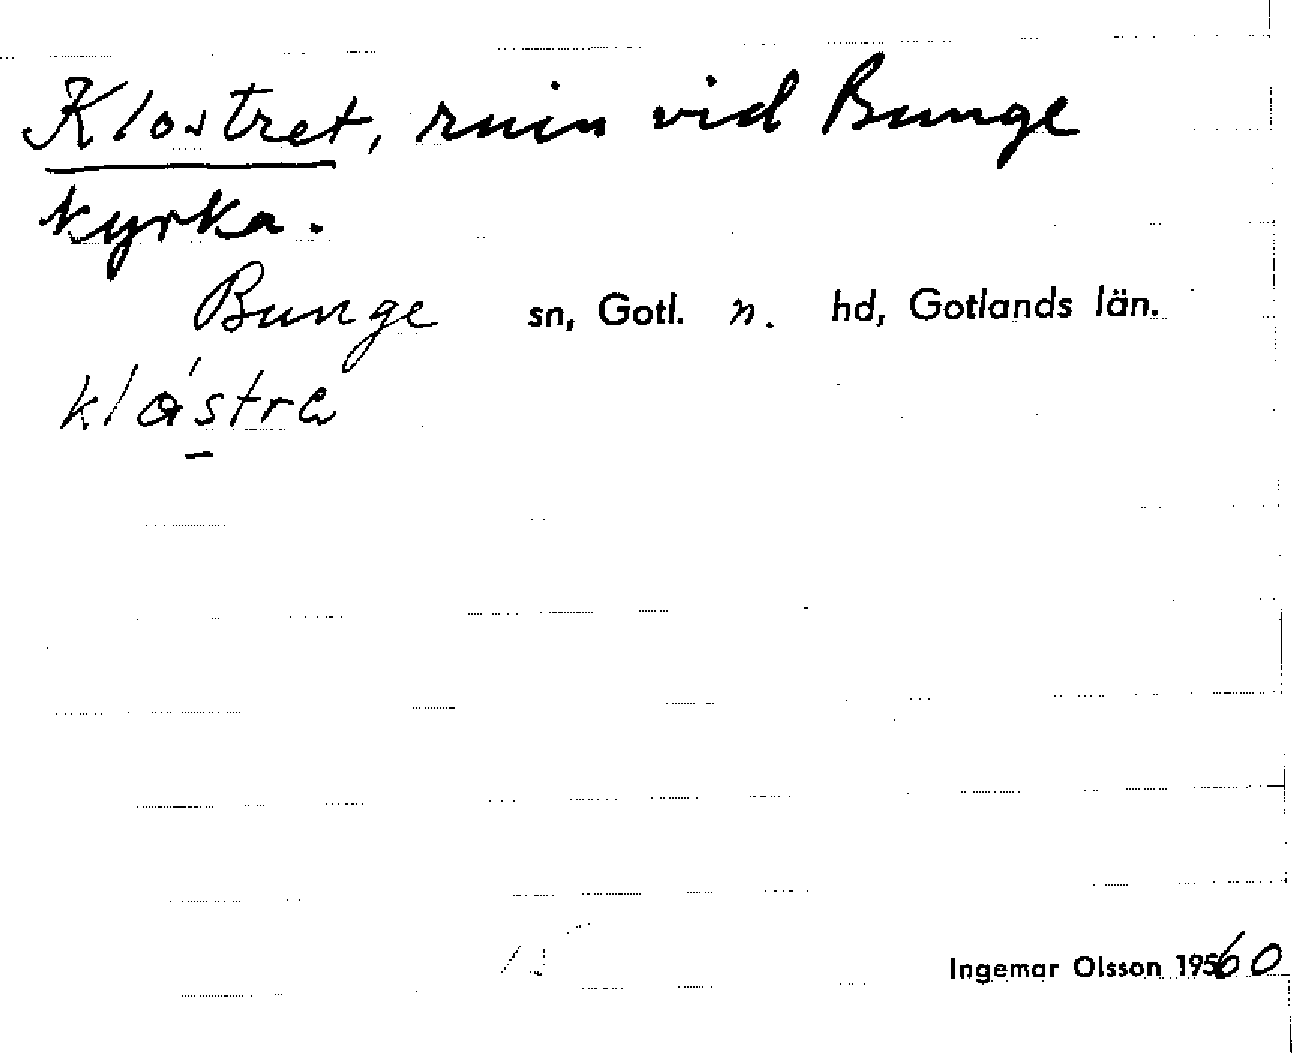 Klostret, ruin vid Bunge
kyrka.
Bunge sn, Gotl. n. hd, Gotlands län.
Ingemar Olsson 1960